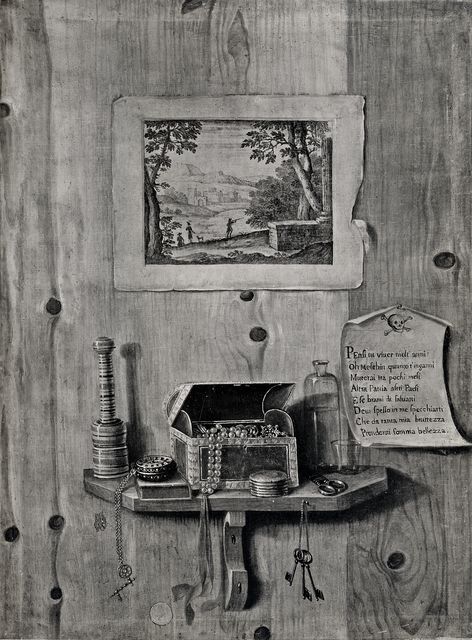 PEnsi tu viuer molt anni
Oh Meschin quanto t inganni
Morerai tra pochi mesi
Altra Patria altri Paesi
E se brami di saluarti
Deui spesso in me specchiarti
Che da tanta mia bruttezza
Prenderai somma bellezza.